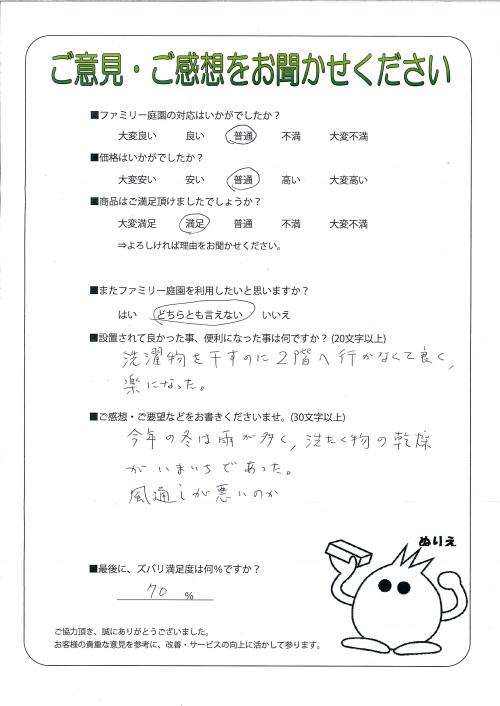 ご意見・ご感想をお聞かせください
■ファミリー庭園の対応はいかがでしたか？
大変良い 良い 普通 不満 大変不満
■価格はいかがでしたか？
大変安い 安い 普通 高い 大変高い
■商品はご満足頂けましたでしょうか？
大変満足 満足 普通 不満 大変不満
⇒よろしければ理由をお聞かせください。
■またファミリー庭園を利用したいと思いますか？
はい どちらとも言えない いいえ
■設置されて良かった事、便利になった事は何ですか？(20文字以上)
洗濯物を干すのに2階へ行かなくて良く、
楽になった。
■ご感想・ご要望などをお書きくださいませ。(30文字以上)
今年の冬は雨が多く、洗たく物の乾燥
がいまいちであった。
風通しが悪いのか
ぬりえ
■最後に、ズバリ満足度は何％ですか？
70 %
ご協力頂き、誠にありがとうございました。
お客様の貴重な意見を参考に、改善・サービスの向上に活かして参ります。